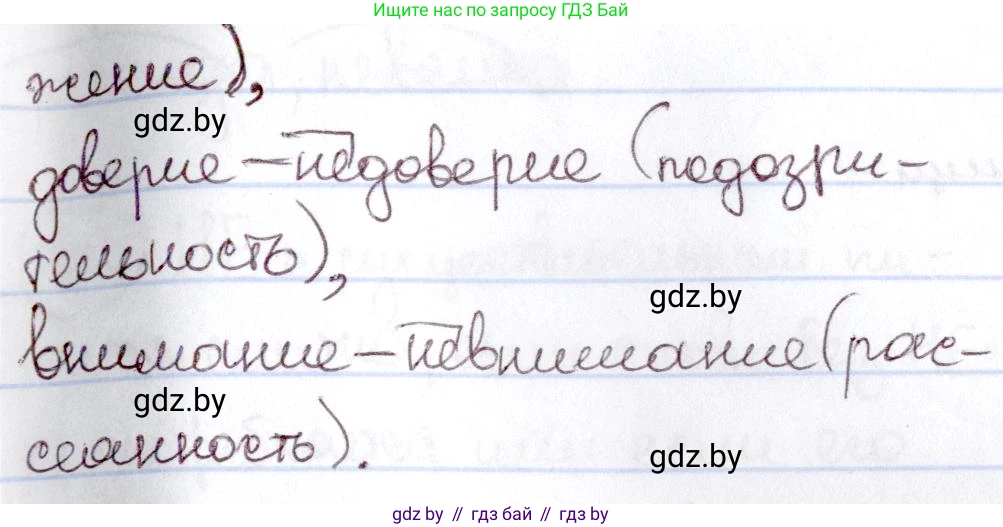 Ищите нас по запросу ГДЗ Бай
жение),
gdz.by
доверие – недоверие (подозри-
тельность),
gdz.by
внимание – невнимание (рас-
gdz.by
сеянность).
gdz.by
gdz.by // гдз бай // гдз by